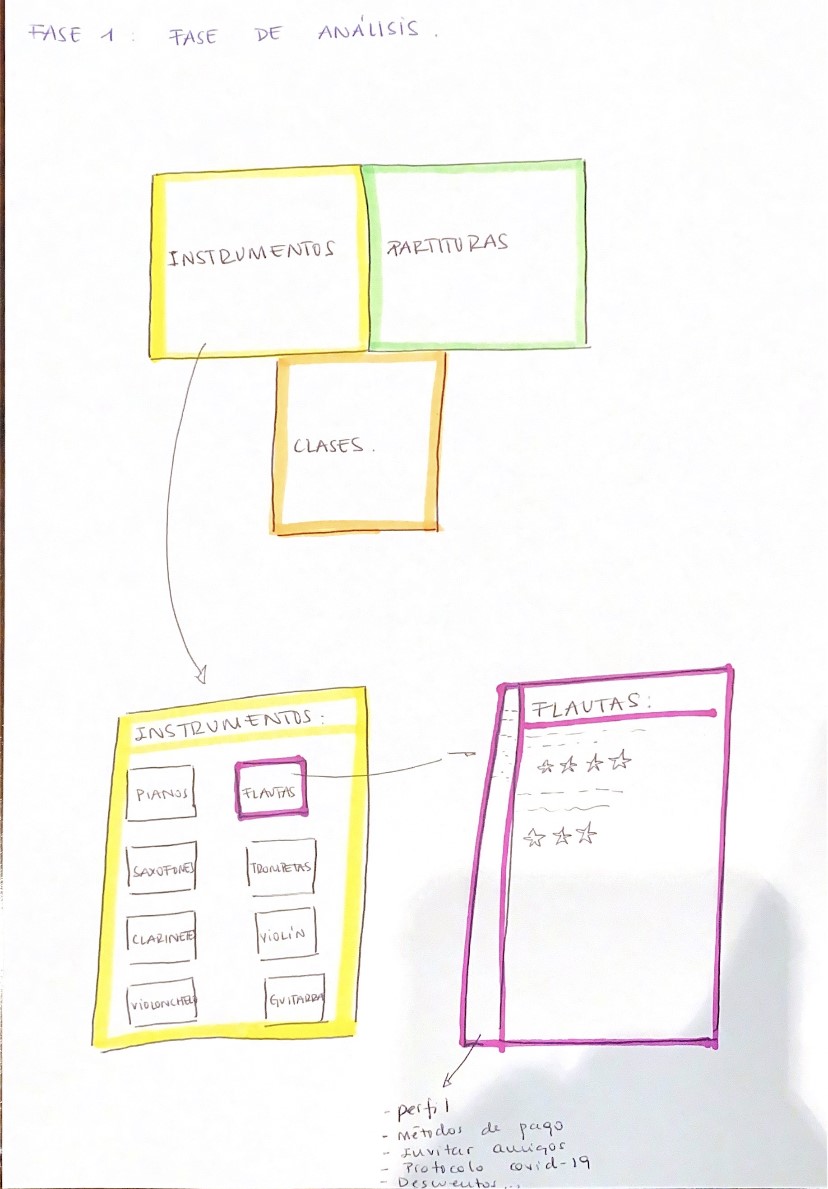 FASE 1: FASE DE ANÁLISIS.
INSTRUMENTOS
PARTITURAS
CLASES.
INSTRUMENTOS:
PIANOS
FLAUTAS
SAXOFONES
TROMPETAS
CLARINETE
VIOLÍN
VIOLONCHELO
GUITARRA
FLAUTAS:
- perfil
- Métodos de pago
- Invitar amigos
- Protocolo covid-19
- Descuentos...